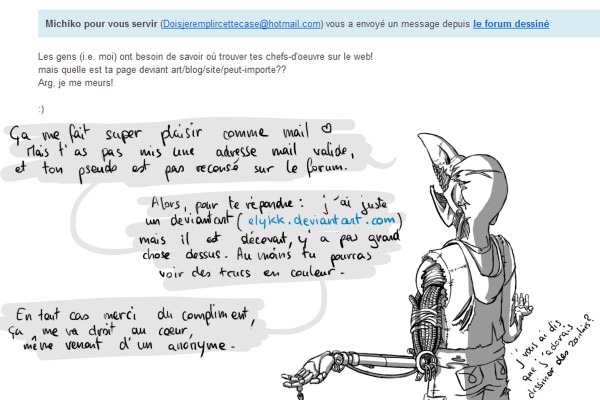 Michiko pour vous servir (Doisjeremplircettecase@hotmail.com) vous a envoyé un message depuis le forum dessiné
Les gens (i.e. moi) ont besoin de savoir où trouver tes chefs-d'oeuvre sur le web!
mais quelle est ta page deviant art/blog/site/peut-importe??
Arg, je me meurs!
:)
Ça me fait super plaisir comme mail ♡
Mais t'as pas mis une adresse mail valide,
et ton pseudo est pas recensé sur le forum.
Alors, pour te répondre : j'ai juste
un deviantart (elykk.deviantart.com)
mais il est décevant, y'a pas grand
chose dessus. Au moins tu pourras
voir des trucs en couleur.
En tout cas merci du compliment,
ça me va droit au coeur,
même venant d'un anonyme.
j'vous ai dis
que j'adorais
dessiner des